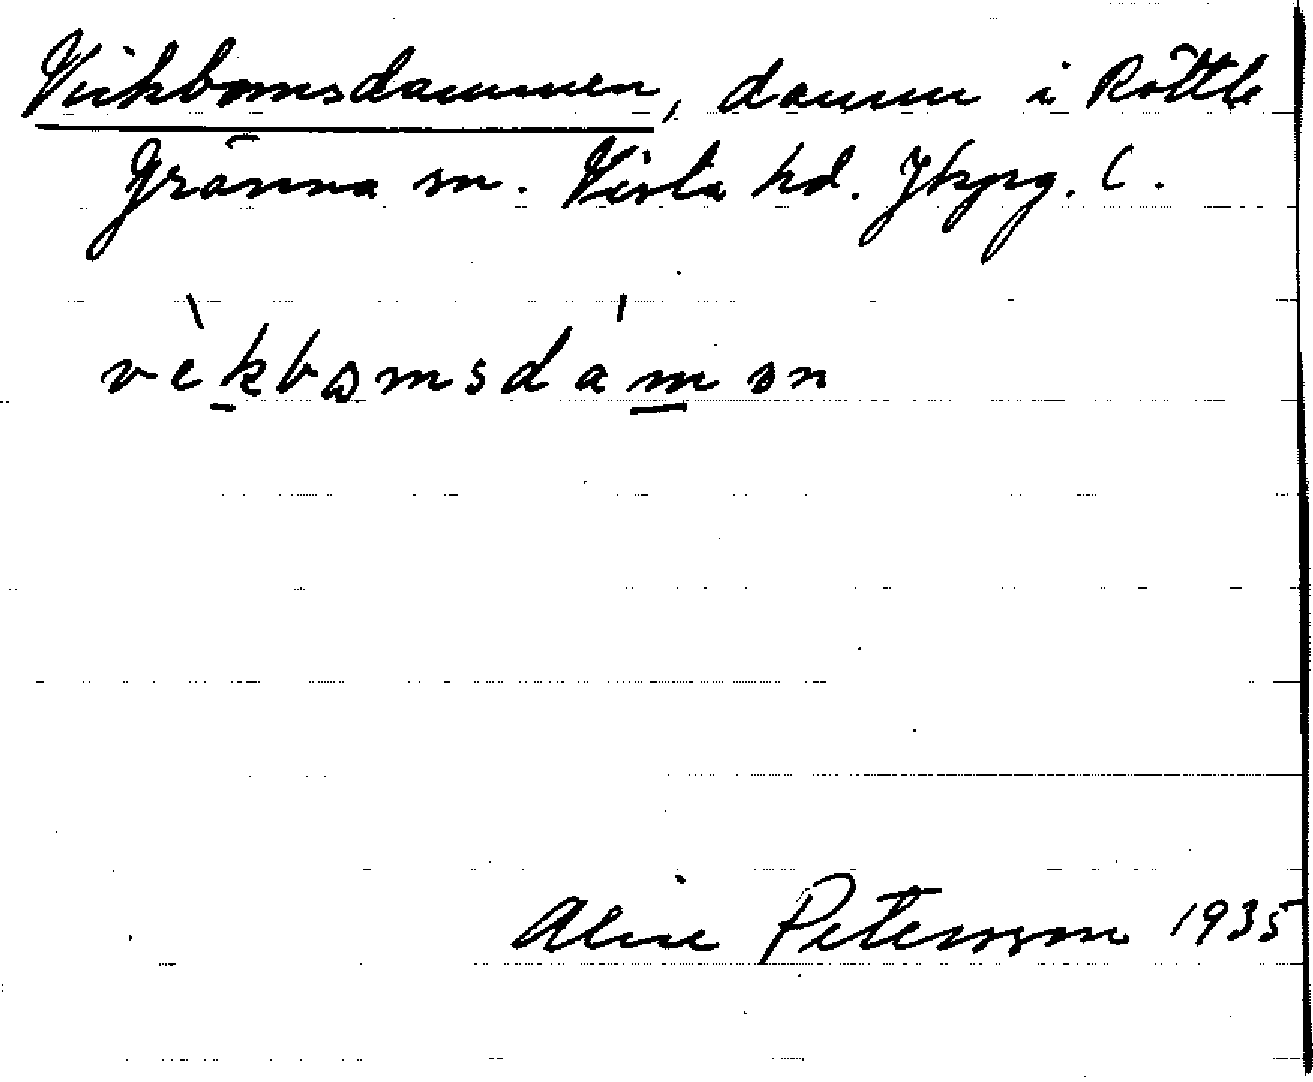 Vickbomsdammen, damm i Röttle
Gränna sn. Vista hd. Jkpg. l.
vèkbomsdámən
Alice Petersson 1935